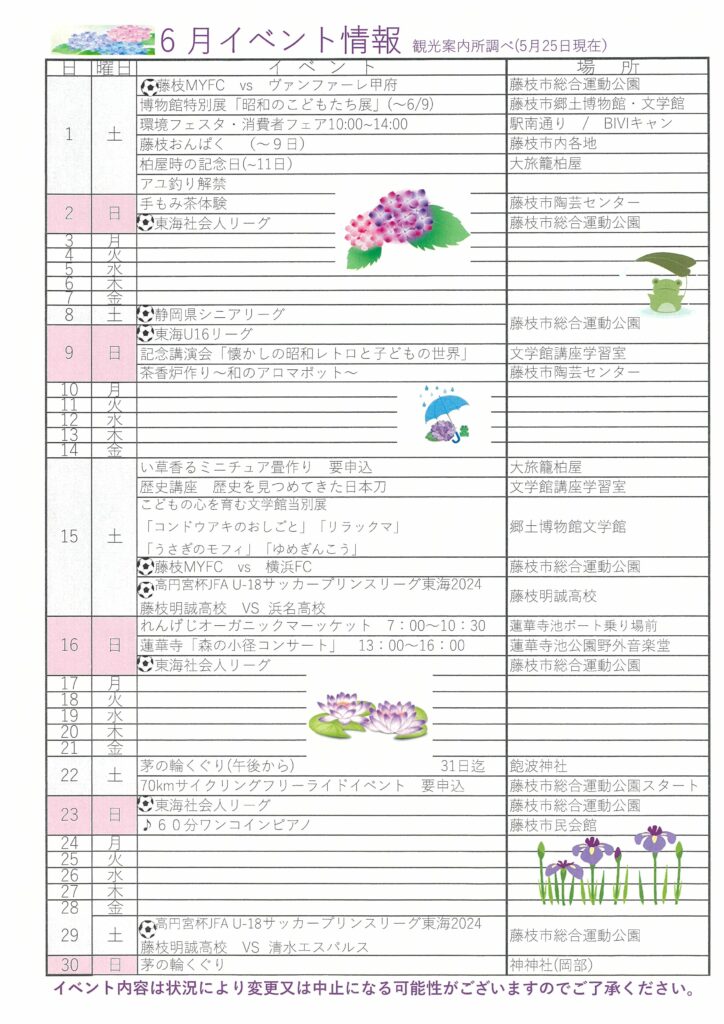 6月イベント情報 観光案内所調べ(5月25日現在)
日 曜日 イベント 場所
1 土 藤枝MYFC vs ヴァンファーレ甲府 藤枝市総合運動公園
博物館特別展「昭和のこどもたち展」(～6/9) 藤枝市郷土博物館・文学館
環境フェスタ・消費者フェア10:00~14:00 駅南通り / BIVIキャン
藤枝おんぱく (～9日) 藤枝市内各地
柏屋時の記念日(~11日) 大旅籠柏屋
アユ釣り解禁
2 日 手もみ茶体験 藤枝市陶芸センター
東海社会人リーグ 藤枝市総合運動公園
3 月
4 火
5 水
6 木
7 金
8 土 静岡県シニアリーグ 藤枝市総合運動公園
9 日 東海U16リーグ
記念講演会「懐かしの昭和レトロと子どもの世界」 文学館講座学習室
茶香炉作り～和のアロマポット～ 藤枝市陶芸センター
10 月
11 火
12 水
13 木
14 金
15 土 い草香るミニチュア畳作り 要申込 大旅籠柏屋
歴史講座 歴史を見つめてきた日本刀 文学館講座学習室
こどもの心を育む文学館当別展
「コンドウアキのおしごと」「リラックマ」 郷土博物館文学館
「うさぎのモフィ」「ゆめぎんこう」
藤枝MYFC vs 横浜FC 藤枝市総合運動公園
高円宮杯JFA U-18サッカープリンスリーグ東海2024 藤枝明誠高校
藤枝明誠高校 VS 浜名高校
16 日 れんげじオーガニックマーッケット 7：00～10：30 蓮華寺池ボート乗り場前
蓮華寺「森の小径コンサート」 13：00～16：00 蓮華寺池公園野外音楽堂
東海社会人リーグ 藤枝市総合運動公園
17 月
18 火
19 水
20 木
21 金
22 土 茅の輪くぐり(午後から) 31日迄 飽波神社
70kmサイクリングフリーライドイベント 要申込 藤枝市総合運動公園スタート
23 日 東海社会人リーグ 藤枝市総合運動公園
♪60分ワンコインピアノ 藤枝市民会館
24 月
25 火
26 水
27 木
28 金
29 土 高円宮杯JFA U-18サッカープリンスリーグ東海2024 藤枝市総合運動公園
藤枝明誠高校 VS 清水エスパルス
30 日 茅の輪くぐり 神神社(岡部)
イベント内容は状況により変更又は中止になる可能性がございますのでご了承ください。